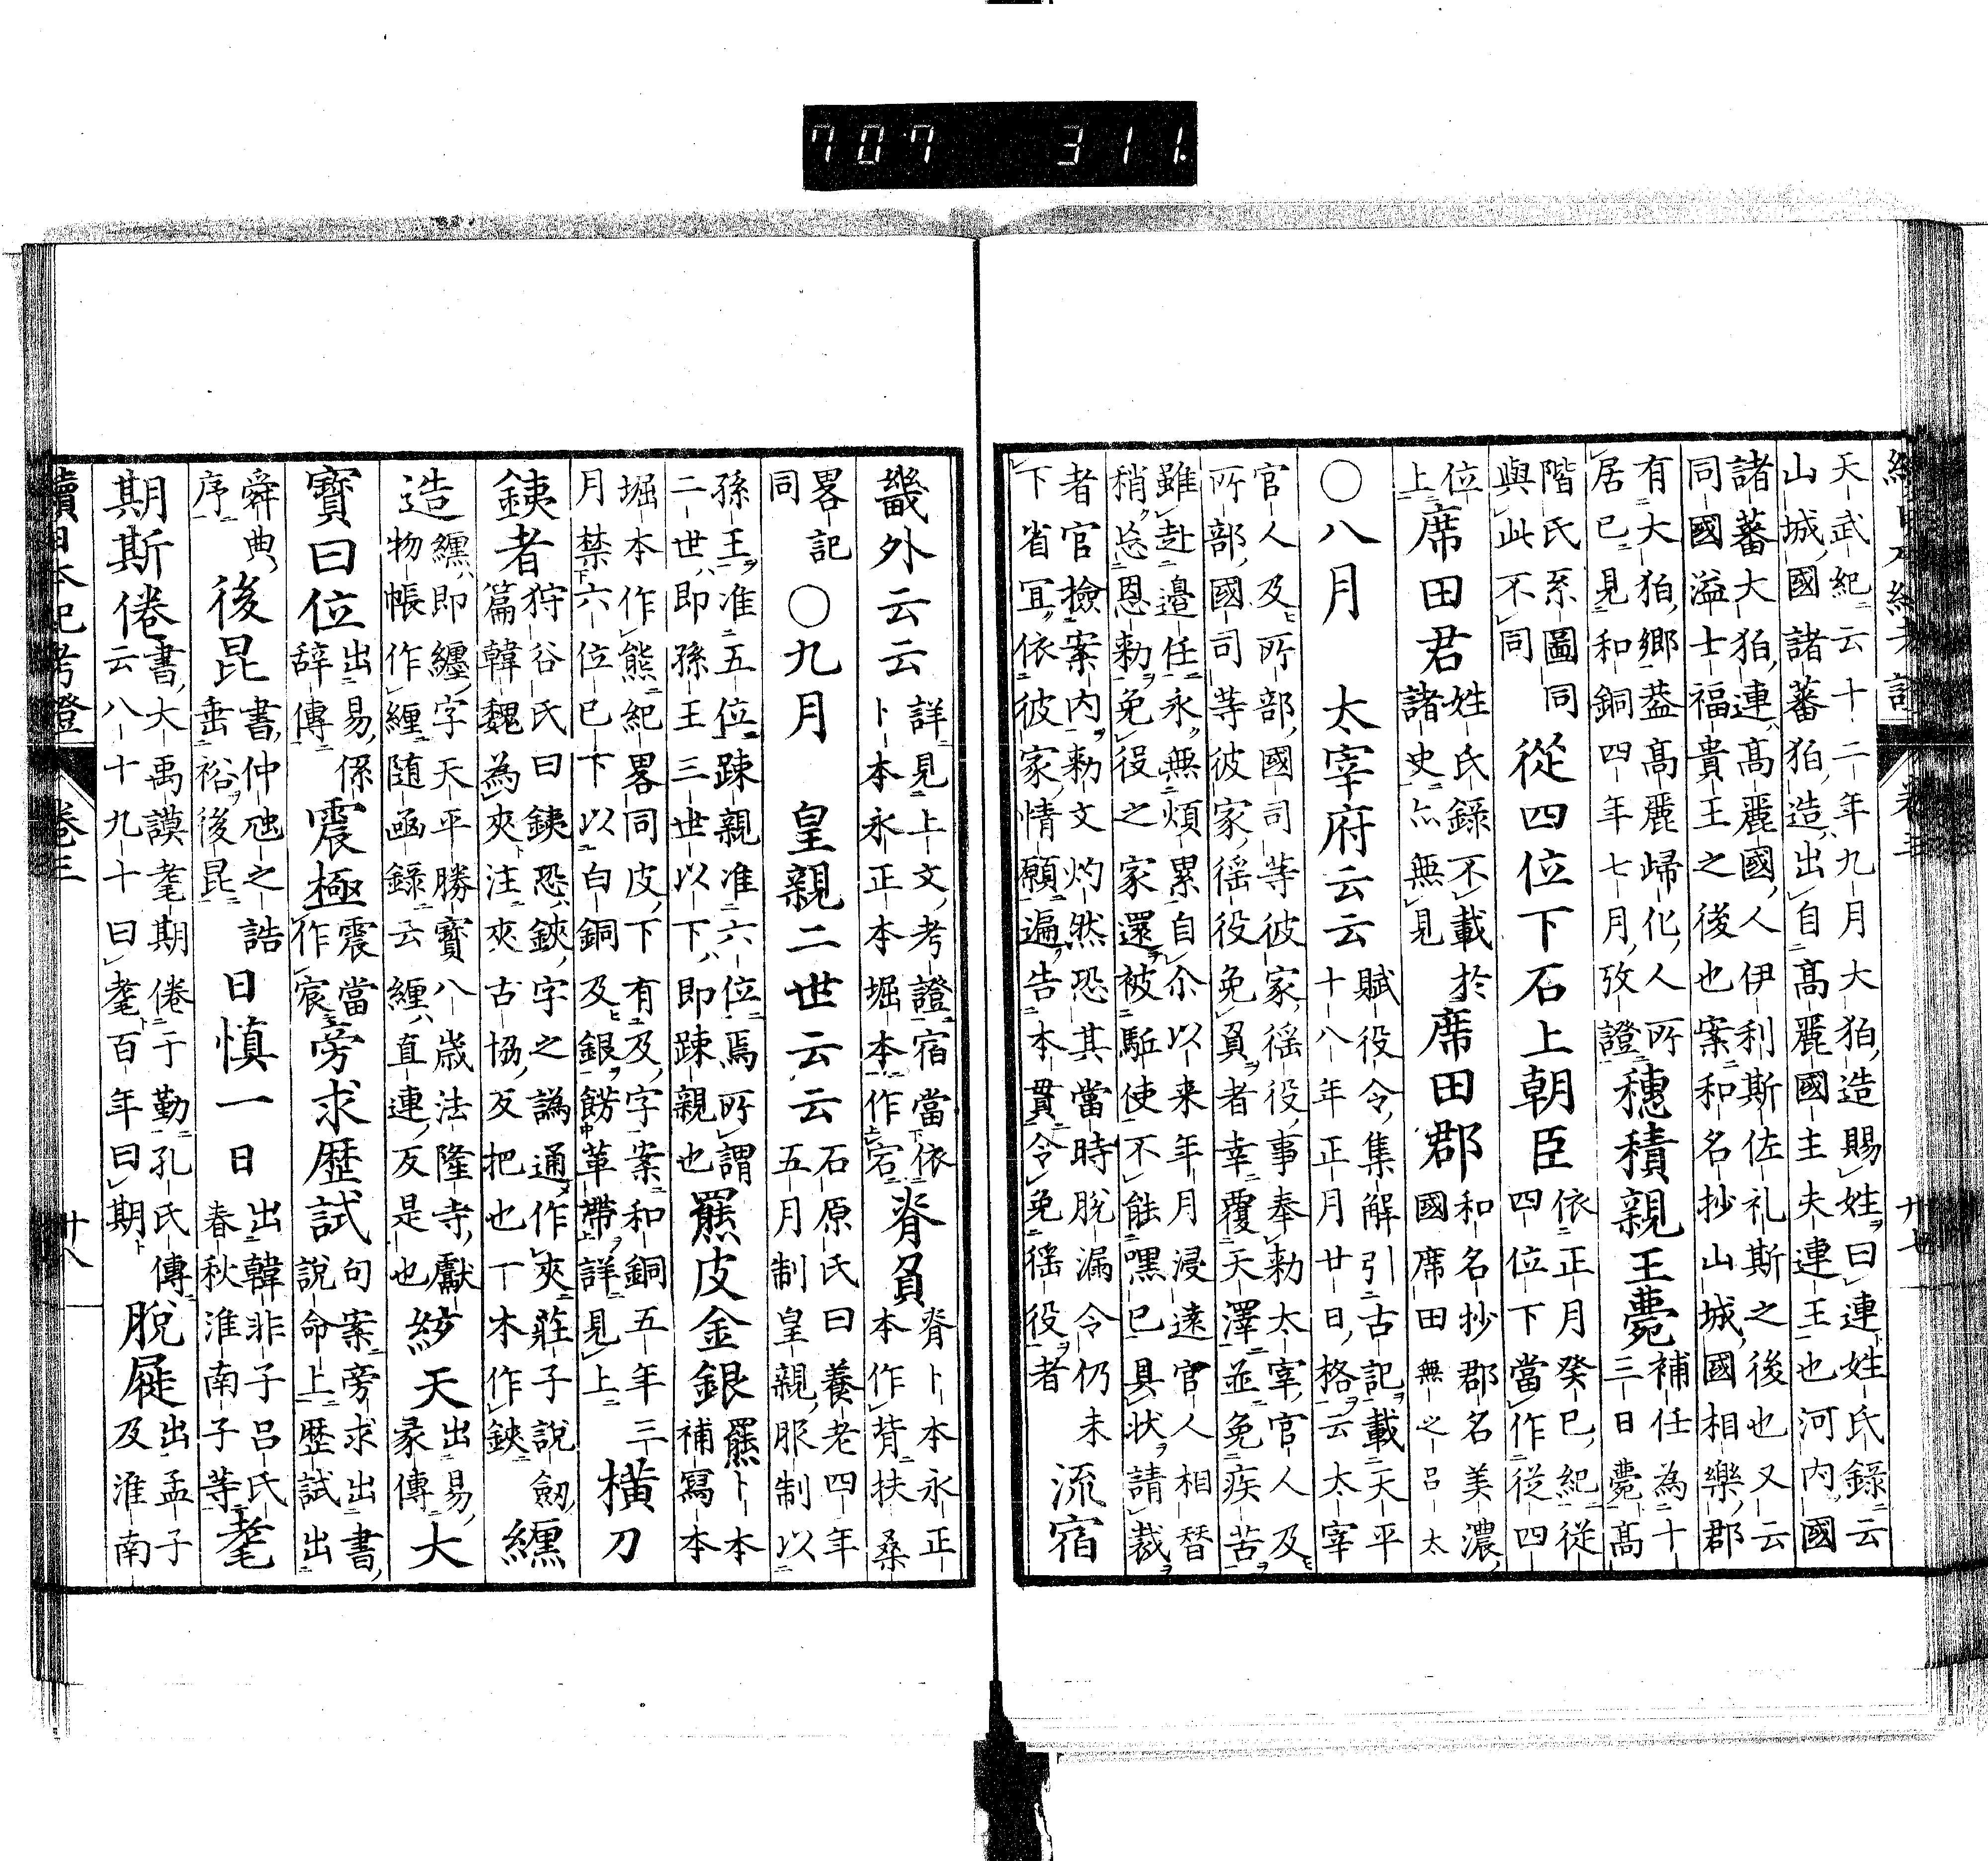 707 311
天武紀云十二年九月大狛造賜姓曰連姓氏錄云
山城國諸蕃狛造出自高麗國主夫連王也河内國
諸蕃大狛連高麗國人伊利斯佐礼斯之後也又云
同國溢士福貴王之後也案和名抄山城國相樂郡
有大狛鄉葢高麗歸化人所
居已見和銅四年七月攷證
穗積親王薨
補任為十
三日薨高
階氏系圖同
與此不同
從四位下石上朝臣
依正月癸巳紀從
四位下當作從四
位
上
席田君
姓氏錄不載於
諸史亦無見
席田郡
和名抄郡名美濃
國席田無之呂太
○八月
太宰府云云
賦役令集解引古記載天平
十八年正月廿日格云太宰
官人及所部國司等彼家徭役事奉勅太宰官人及
所部國司等彼家徭役免負者幸覆天澤並免疾苦
雖赴邉任永無煩累自尒以来年月浸遠官人相替
稍忘恩勅免役之家還被駈使不能嘿已具状請裁
者官檢案内勅文灼然恐其當時脫漏令仍未
下省宜依彼家情願遍告本貫令免徭役者
流宿
畿外云云
詳見上文考證宿當依
卜本永正本堀本作宕
脊負
脊卜本永正
本作背扶桑
畧記
同
○九月
皇親二世云云
石原氏曰養老四年
五月制皇親服制以
孫王准五位踈親准六位焉所謂
二世即孫王三世以下即踈親也
羆皮金銀
羆卜本
補寫本
堀本作熊紀畧同皮下有及字案和銅五年三
月禁六位已下以白銅及銀餝革帶詳見上
橫刀
鋏者
狩谷氏曰鋏恐鋏字之譌通作夾莊子說劔
篇韓魏為夾注夾古協反把也一木作鋏
纒
造
纒即纒字天平勝寳八歳法隆寺獻
物帳作緾随凾錄云緾直連反是也
紗天
出易
彖傳
大
寳曰位
出易係
辭傳
震極
震當
作宸
旁求歷試
句案旁求出書
說命上歷試出
舜典
序
後昆
書仲虺之誥
垂裕後昆
日慎一日
出韓非子呂氏
春秋淮南子等
耄
期斯倦
書大禹謨耄期倦于勤孔氏傳
云八十九十曰耄百年曰期
脫屣
出孟子
及淮南
續日本紀考證
卷三
廿八